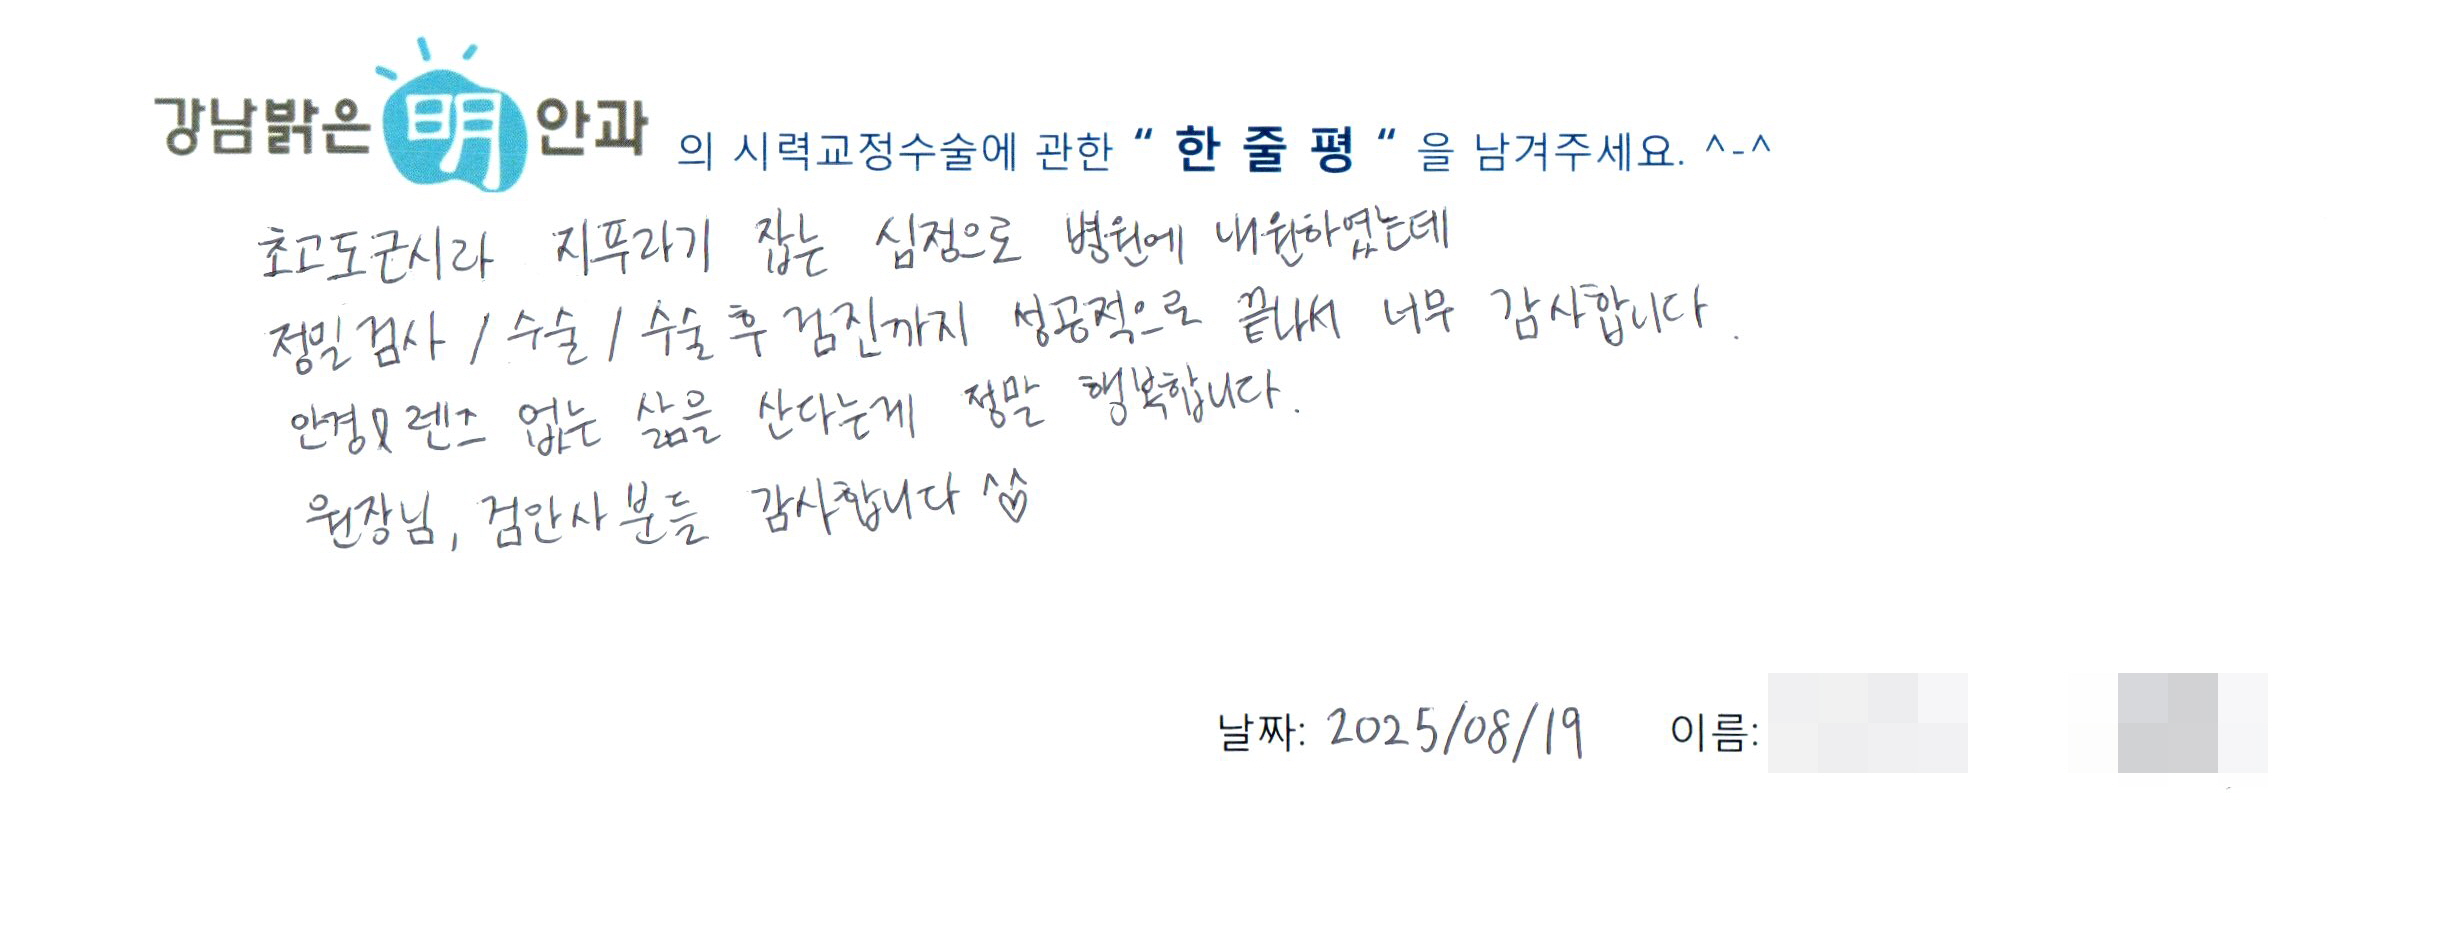 강남밝은 明 안과 의 시력교정수술에 관한 “ 한 줄 평 “ 을 남겨주세요. ^-^
초고도근시라 지푸라기 잡는 심정으로 병원에 내원하였는데
정밀검사 / 수술 / 수술 후 검진까지 성공적으로 끝나서 너무 감사합니다.
안경&렌즈 없는 삶을 산다는게 정말 행복합니다.
원장님, 검안사분들 감사합니다 ^♡^
날짜: 2025/08/19 이름: